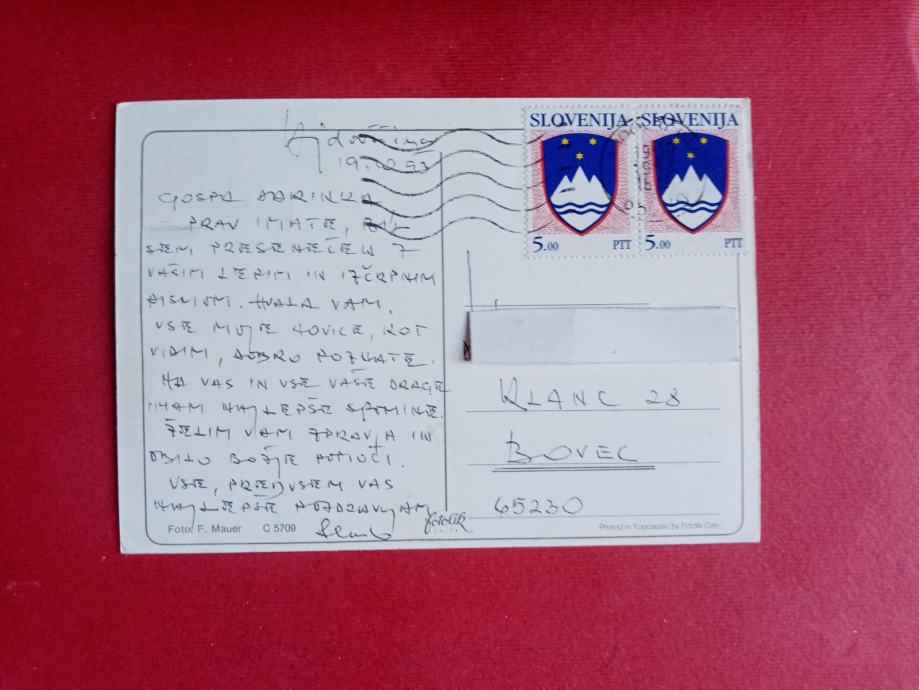 Ajdovščina
GOSPA DARINKA
PRAV IMATE, BIL
SEM PRESENEČEN Z
VAŠIM LEPIM IN IZČRPNIM
PISMOM. HVALA VAM.
VSE MOJE NOVICE, KOT
VIDIM, DOBRO POZNATE.
NA VAS IN VSE VAŠE DRAGE
IMAM NAJLEPŠE SPOMINE.
ŽELIM VAM ZDRAVJA IN
OBILO BOŽJE POMOČI.
VSE, PREDVSEM VAS
NAJLEPŠE POZDRAVLJAM
Foto: F. Mauer C 5709
fotolik
SLOVENIJA SLOVENIJA
5.00 PTT 5.00 PTT
KLANC 28
BOVEC
65230
Printed in Yugoslavia by Fotolik Celje